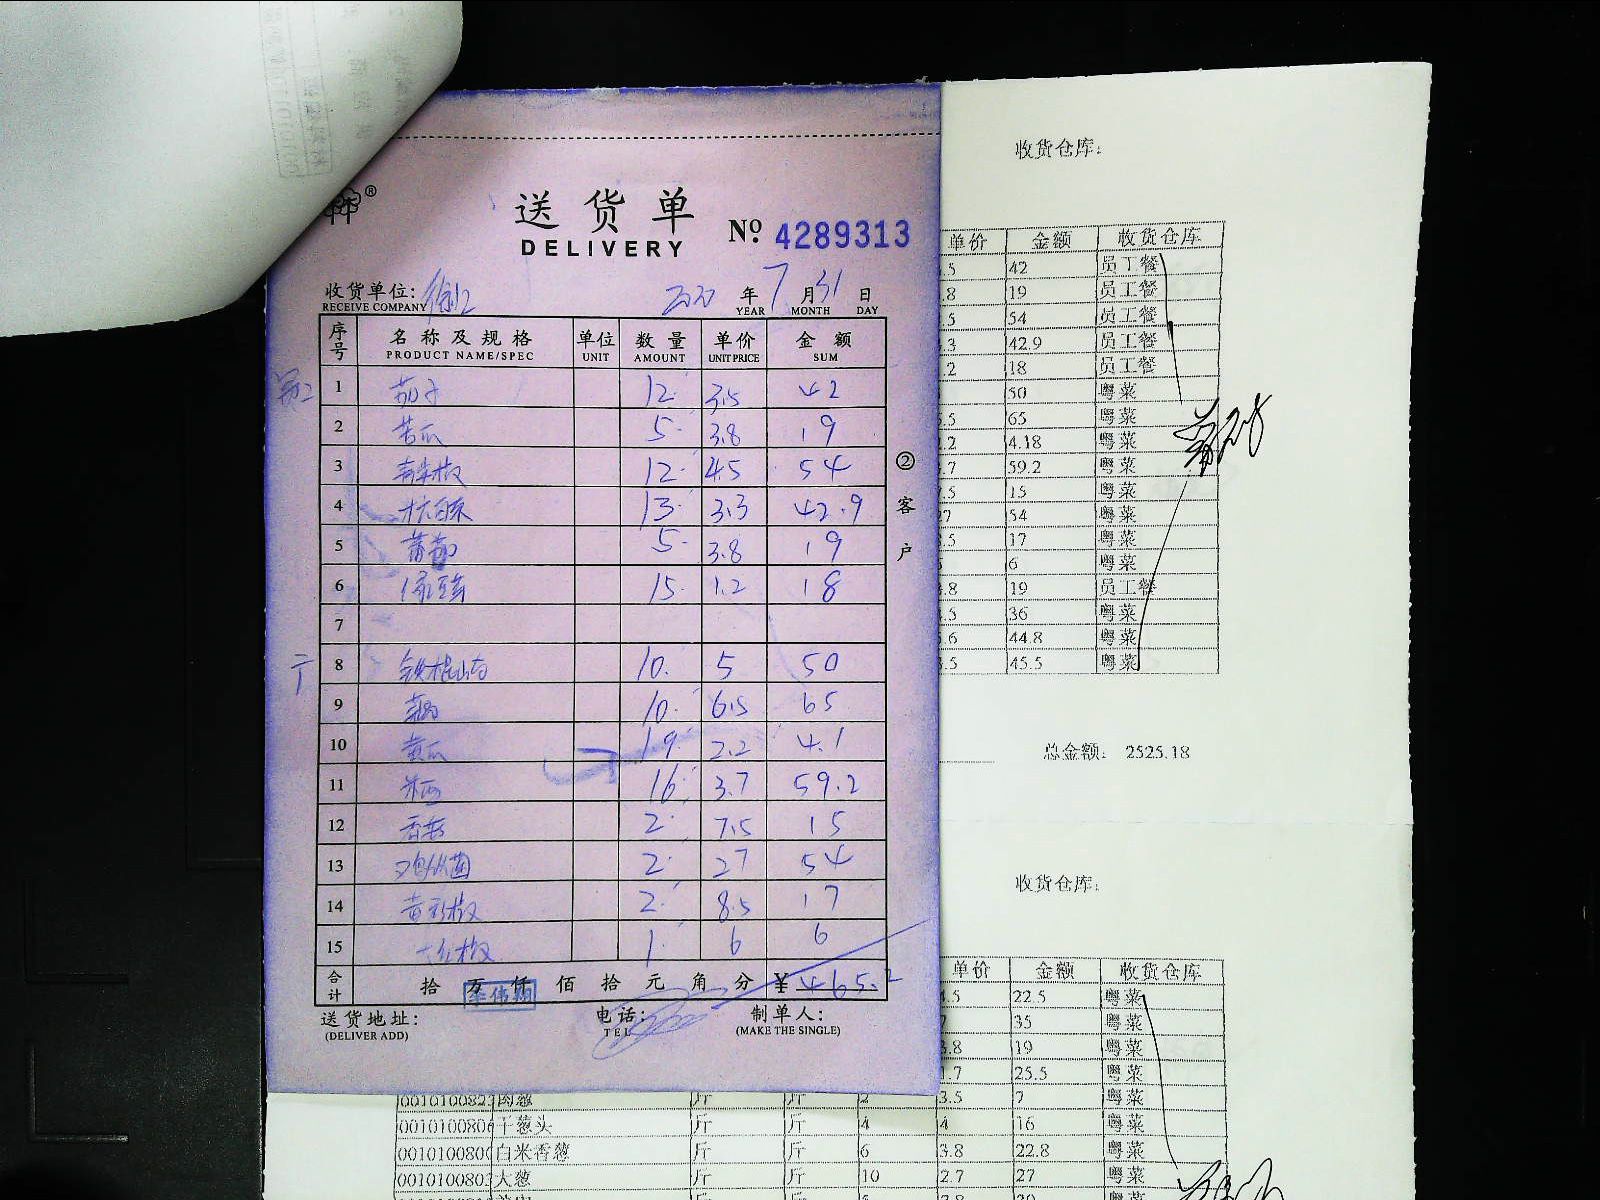 送货单
DELIVERY
No. 4289313
收货单位:
RECEIVE COMPANY
2020 年 7 月 31 日
YEAR MONTH DAY
序号 名称及规格 单位 数量 单价 金额
PRODUCT NAME/SPEC UNIT AMOUNT UNIT PRICE SUM
1 茄子 12 3.5 42
2 苦瓜 5 3.8 19
3 12 4.5 54
4 13 3.3 42.9
5 5 3.8 19
6 15 1.2 18
7
8 铁棍山药 10 5 50
9 10 6.5 65
10 黄瓜 1.9 2.2 4.1
11 16 3.7 59.2
12 香菇 2 7.5 15
13 鸡纵菌 2 27 54
14 黄彩椒 2 8.5 17
15 大红椒 1 6 6
合计 拾 万 仟 佰 拾 元 角 分 ¥ 465.2
李伟翔
送货地址:
(DELIVER ADD)
电话:
TEL
制单人:
(MAKE THE SINGLE)
② 客户
收货仓库:
单价 金额 收货仓库
.5 42 员工餐
.8 19 员工餐
.5 54 员工餐
.3 42.9 员工餐
.2 18 员工餐
50 粤菜
.5 65 粤菜
.2 4.18 粤菜
.7 59.2 粤菜
.5 15 粤菜
27 54 粤菜
.5 17 粤菜
6 粤菜
.8 19 员工餐
.5 36 粤菜
.6 44.8 粤菜
.5 45.5 粤菜
总金额: 2525.18
收货仓库:
单价 金额 收货仓库
.5 22.5 粤菜
35 粤菜
3.8 19 粤菜
1.7 25.5 粤菜
肉葱 斤 斤 2 3.5 7 粤菜
干葱头 斤 斤 4 4 16 粤菜
白米香葱 斤 斤 6 3.8 22.8 粤菜
大葱 斤 斤 10 2.7 27 粤菜